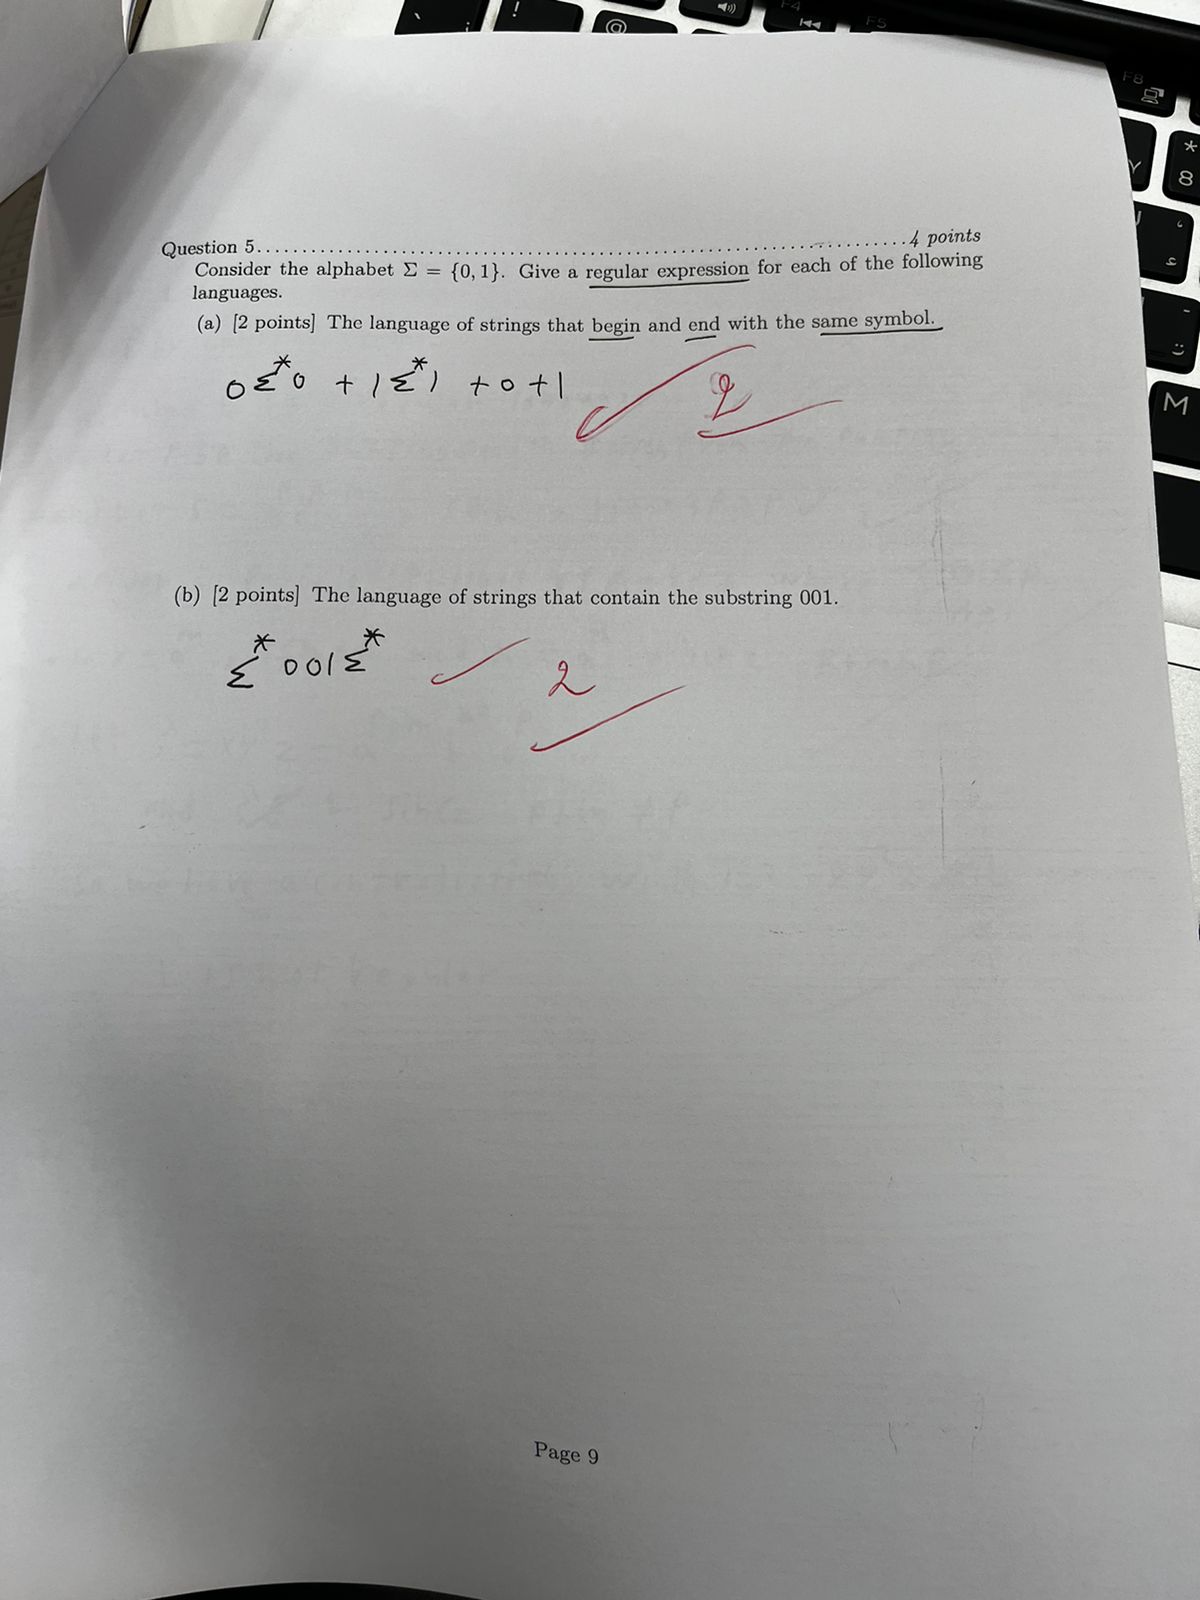 F4
F5
F8
@
*
8
M
Question 5..........................................................................4 points
Consider the alphabet Σ = {0, 1}. Give a regular expression for each of the following
languages.
(a) [2 points] The language of strings that begin and end with the same symbol.
0Σ*0 + 1Σ*1 + 0 + 1
2
(b) [2 points] The language of strings that contain the substring 001.
Σ*001Σ*
2
Page 9